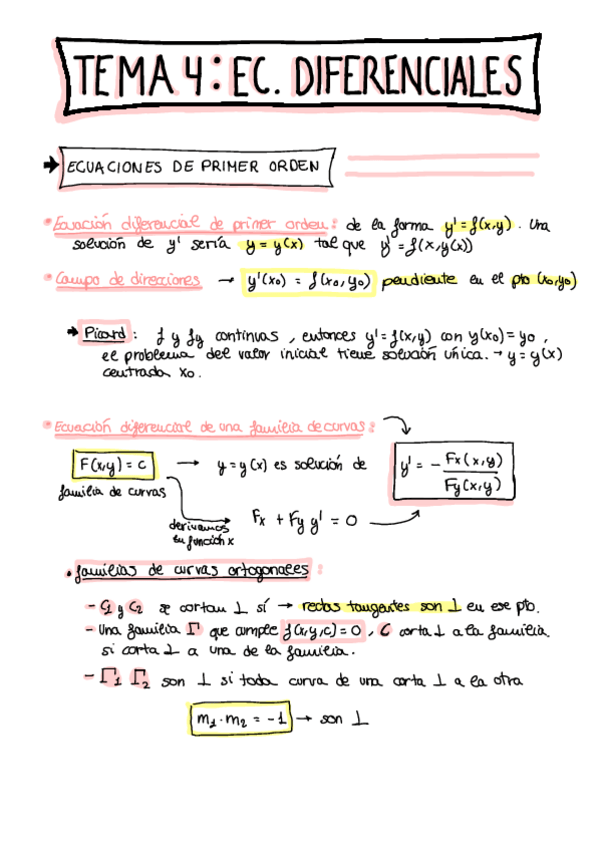 TEMA 4: EC. DIFERENCIALES
→ ECUACIONES DE PRIMER ORDEN
* Ecuación diferencial de primer orden: de la forma y' = f(x,y). Una
solución de y' sería y = y(x) tal que y' = f(x,y(x))
* Campo de direcciones → y'(x₀) = f(x₀,y₀) pendiente en el pto (x₀,y₀)
→ Picard: f y fy continuas, entonces y' = f(x,y) con y(x₀) = y₀,
el problema del valor inicial tiene solución única. → y = y(x)
centrada x₀.
* Ecuación diferencial de una familia de curvas:
F(x,y) = c → y = y(x) es solución de y' = - Fx(x,y) / Fy(x,y)
familia de curvas
derivamos
en función x
Fx + Fy y' = 0
• familias de curvas ortogonales:
- C1 y C2 se cortan ⊥ sí → rectas tangentes son ⊥ en ese pto.
- Una familia Γ que cumple f(x,y,c) = 0, C corta ⊥ a la familia
si corta ⊥ a una de la familia.
- Γ1 Γ2 son ⊥ si toda curva de una corta ⊥ a la otra
m₁ · m₂ = -1 → son ⊥